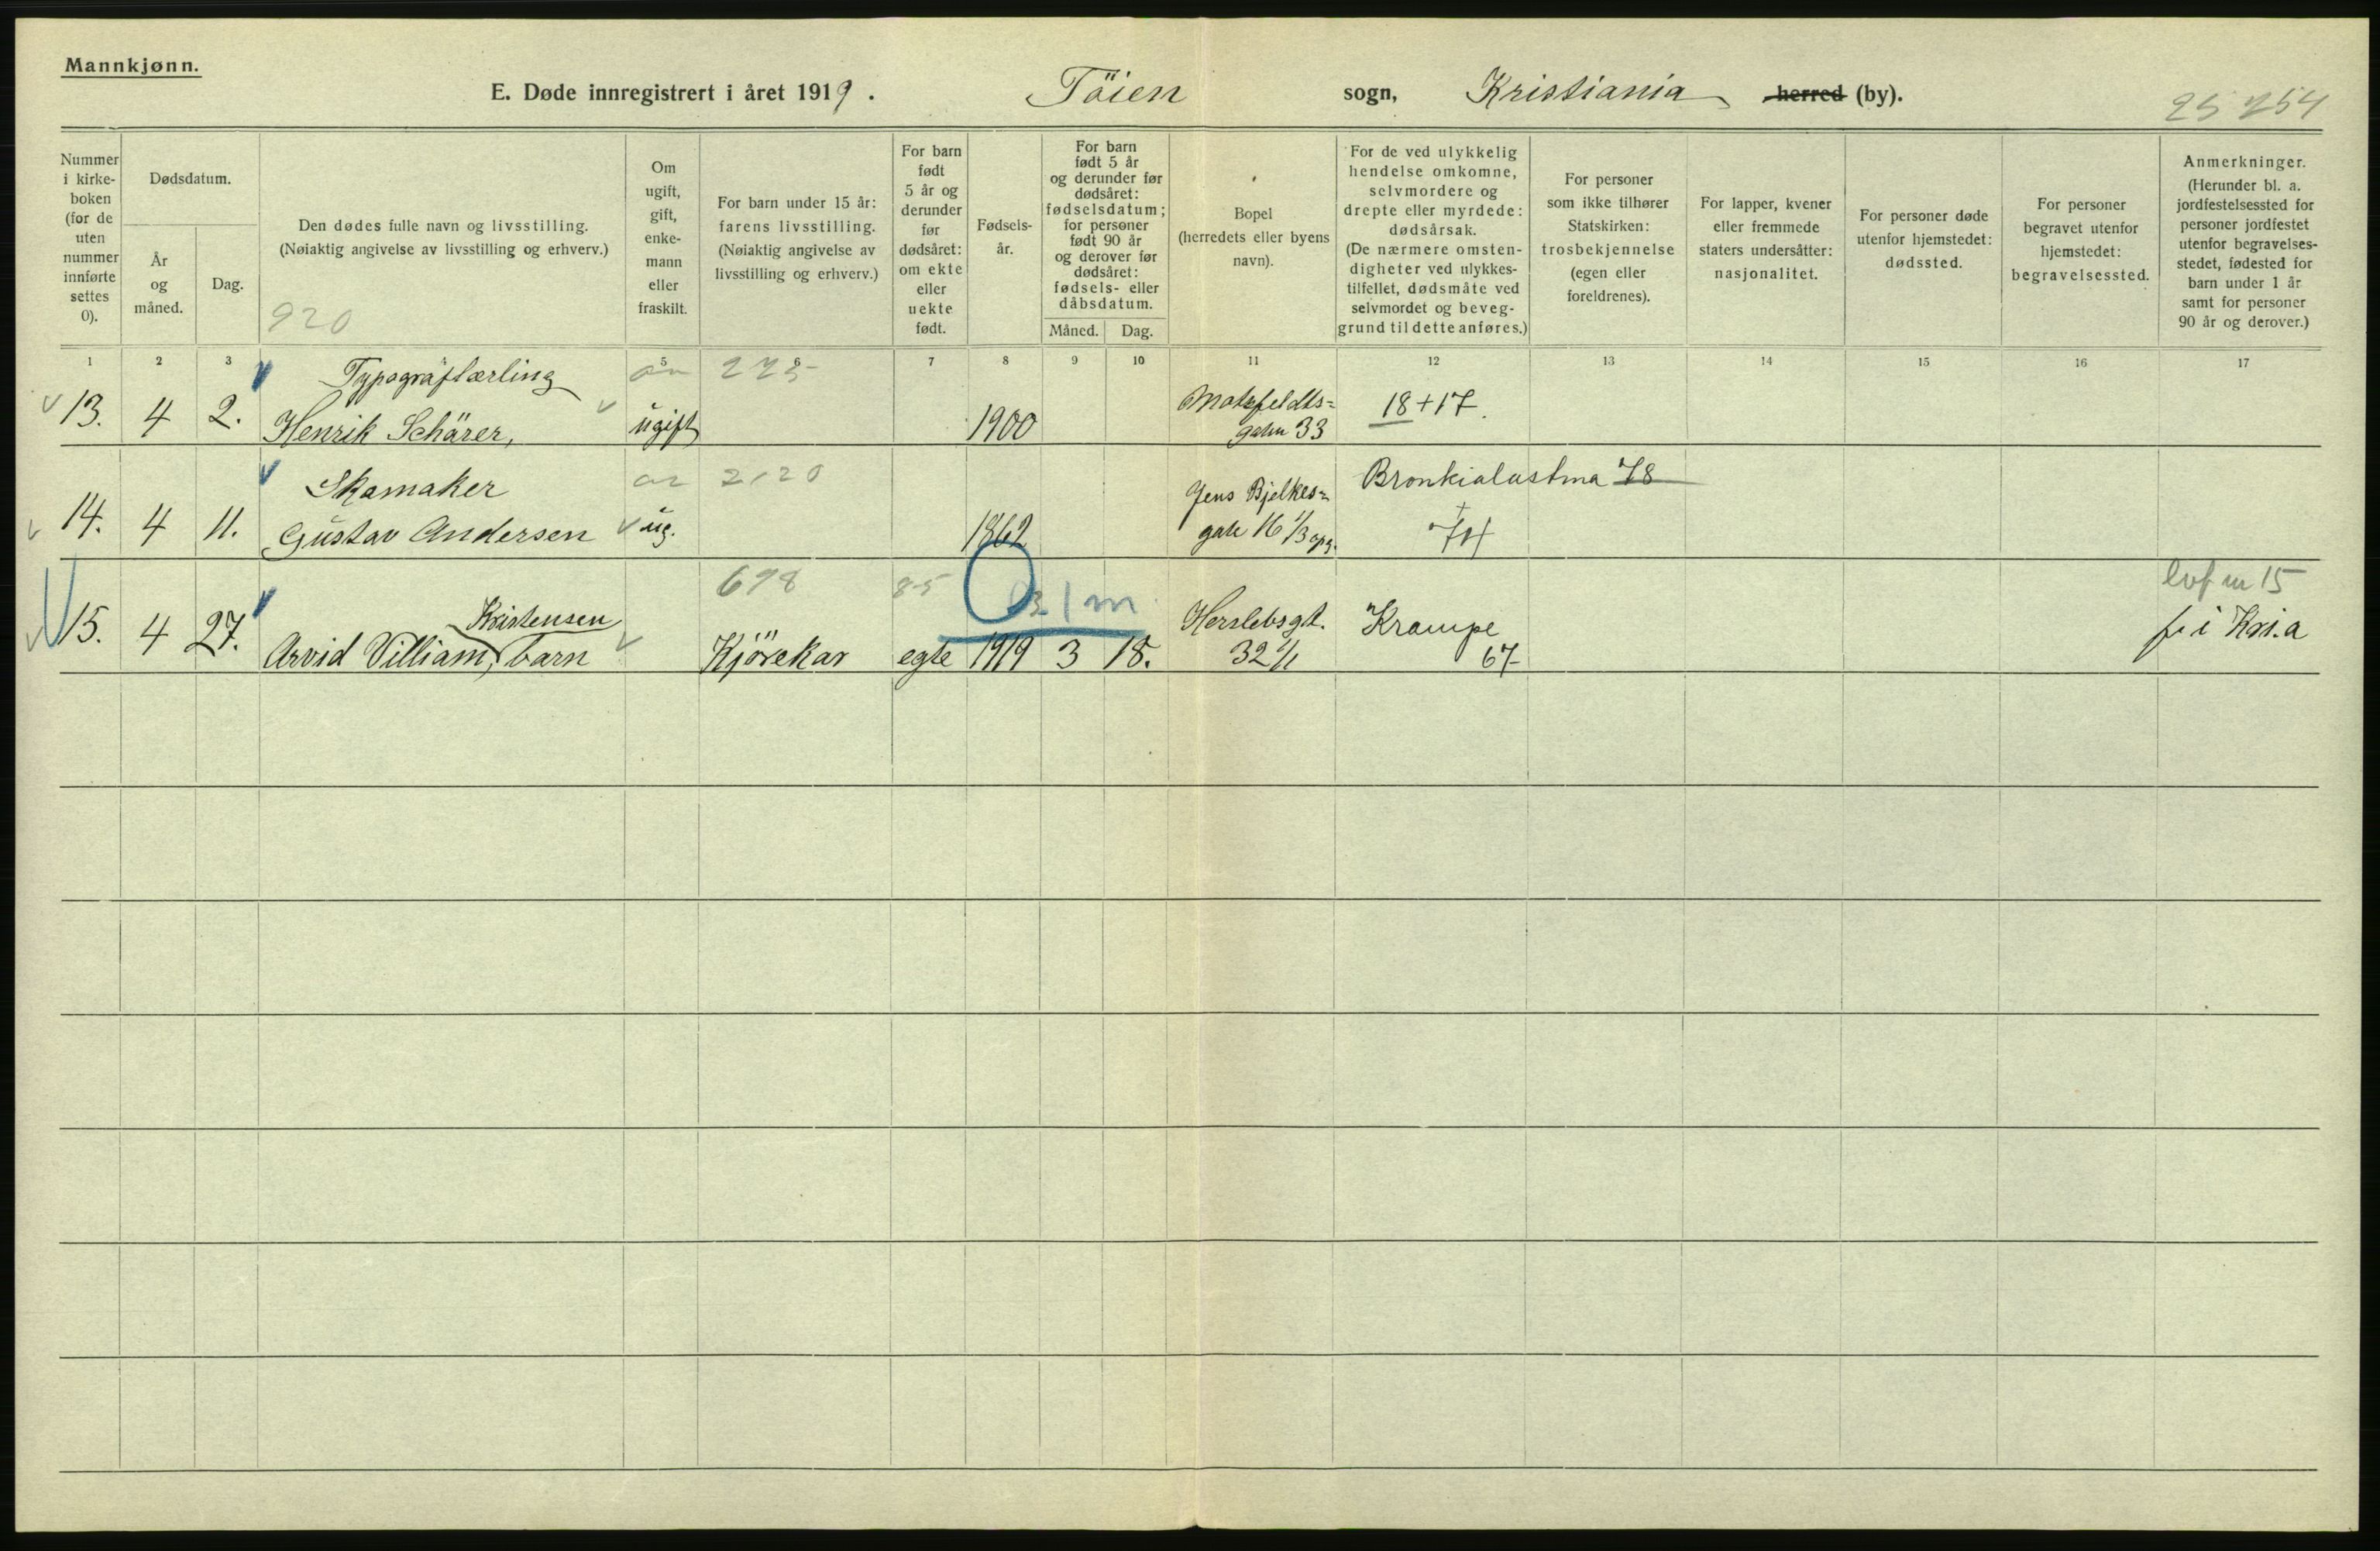 Mannkjønn.
E. Døde innregistrert i året 1919. Töien sogn, Kristiania herred (by).
25 254
Nummer i kirke-boken (for de uten nummer innførte settes 0).
Dødsdatum.
År og måned.
Dag.
Den dødes fulle navn og livsstilling.
(Nøiaktig angivelse av livsstilling og erhverv.)
920
Om ugift, gift, enke-mann eller fraskilt.
For barn under 15 år: farens livsstilling. (Nøiaktig angivelse av livsstilling og erhverv.)
For barn født 5 år og derunder før dødsåret: om ekte eller uekte født.
Fødsels-år.
For barn født 5 år og derunder før dødsåret: fødselsdatum; for personer født 90 år og derover før dødsåret: fødsels- eller dåbsdatum.
Måned. Dag.
Bopel (herredets eller byens navn).
For de ved ulykkelig hendelse omkomne, selvmordere og drepte eller myrdede: dødsårsak. (De nærmere omsten-digheter ved ulykkes-tilfellet, dødsmåte ved selvmordet og beveg-grund til dette anføres.)
For personer som ikke tilhører Statskirken: trosbekjennelse (egen eller foreldrenes).
For lapper, kvener eller fremmede staters undersåtter: nasjonalitet.
For personer døde utenfor hjemstedet: dødssted.
For personer begravet utenfor hjemstedet: begravelsessted.
Anmerkninger. (Herunder bl. a. jordfestelsessted for personer jordfestet utenfor begravelses-stedet, fødested for barn under 1 år samt for personer 90 år og derover.)
1 2 3 5 6 7 8 9 10 11 12 13 14 15 16 17
Typograflærling
13. 4 2. Henrik Schärer, ugift 1900 Motzfeldts= gaten 33 18+17.
Skomaker 2120
14. 4 11. Gustav Andersen ug. 1862 Jens Bjelkes= gate 16 Bronkialastma 78
698 85 1 m
Kristensen
15. 4 27. Arvid Villiam, barn Kjörekar egte 1919 3 18. Herslebsgt. 32 Krampe 67
f. i Kri.a